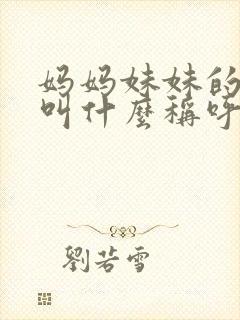 妈妈妹妹的
叫什麼稱呼
劉若雪